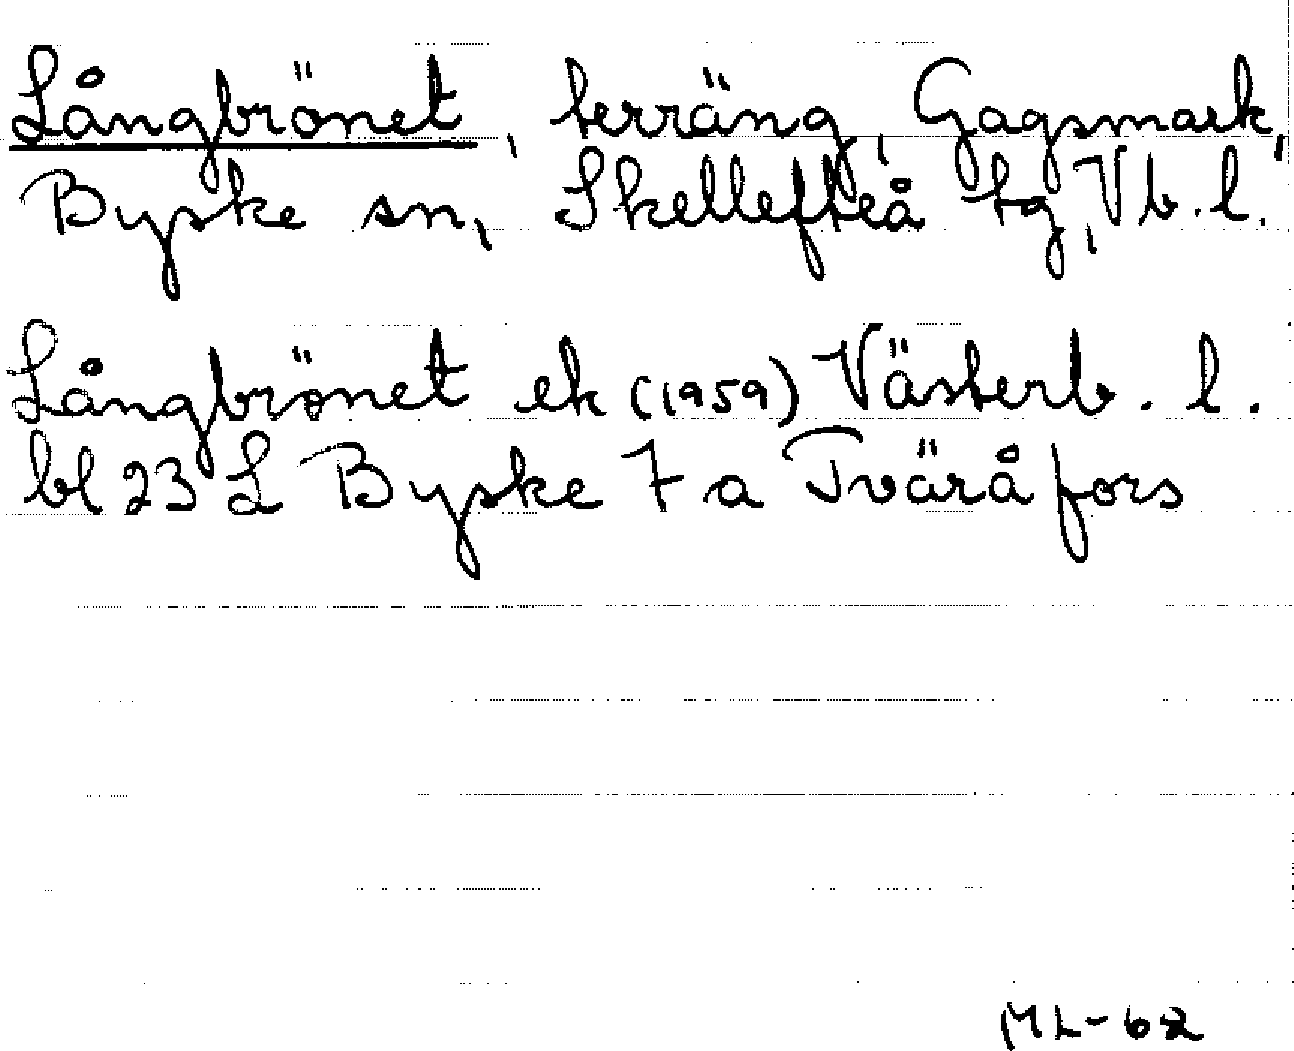 Långbrönet, terräng, Gagsmark,
Byske sn, Skellefteå tg, Vb.l.
Långbrönet ek (1959) Västerb. l.
bl 23 L Byske 7 a Tväråfors
ML-62